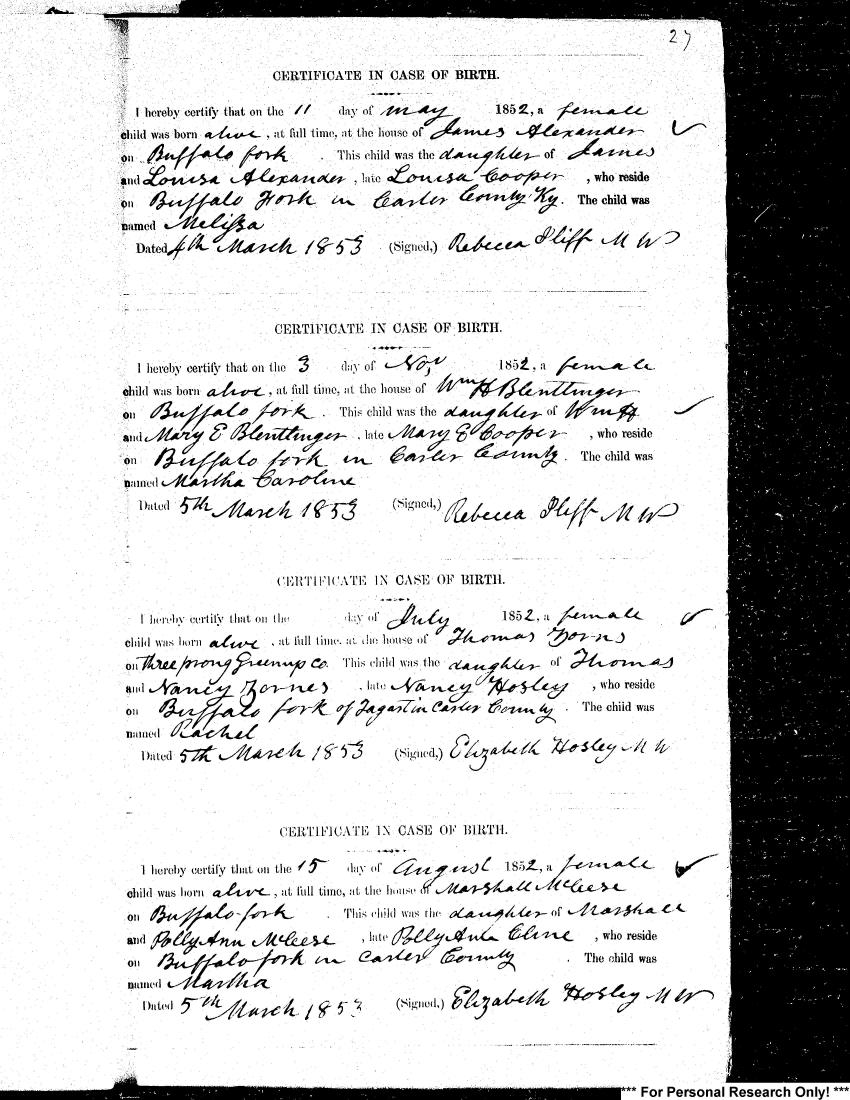 27
CERTIFICATE IN CASE OF BIRTH.
I hereby certify that on the 11 day of may 1852, a female
child was born alive, at full time, at the house of James Alexander
on Buffalo fork. This child was the daughter of James
and Louisa Alexander, late Louisa Cooper, who reside
on Buffalo Fork in Carter County Ky. The child was
named Melissa
Dated 4th March 1853 (Signed,) Rebecca Iliff M W
CERTIFICATE IN CASE OF BIRTH.
I hereby certify that on the 3 day of Nov, 1852, a female
child was born alive, at full time, at the house of Wm H Blenttinger
on Buffalo fork. This child was the daughter of Wm H
and Mary E Blenttinger, late Mary E Cooper, who reside
on Buffalo fork in Carter County. The child was
named Martha Caroline
Dated 5th March 1853 (Signed,) Rebecca Iliff M W
CERTIFICATE IN CASE OF BIRTH.
I hereby certify that on the day of July 1852, a female
child was born alive, at full time, at the house of Thomas Zorns
on three prong Greenup Co. This child was the daughter of Thomas
and Nancy Zornes, late Nancy Hosley, who reside
on Buffalo fork of in Carter County. The child was
named Rachel
Dated 5th March 1853 (Signed,) Elizabeth Hosley M W
CERTIFICATE IN CASE OF BIRTH.
I hereby certify that on the 15 day of August 1852, a female
child was born alive, at full time, at the house of Marshall McGlese
on Buffalo fork. This child was the daughter of Marshall
and Polly Ann, late Polly Ann Cline, who reside
on Buffalo fork in Carter County. The child was
named Martha
Dated 5th March 1853 (Signed,) Elizabeth Hosley M W
*** For Personal Research Only! ***